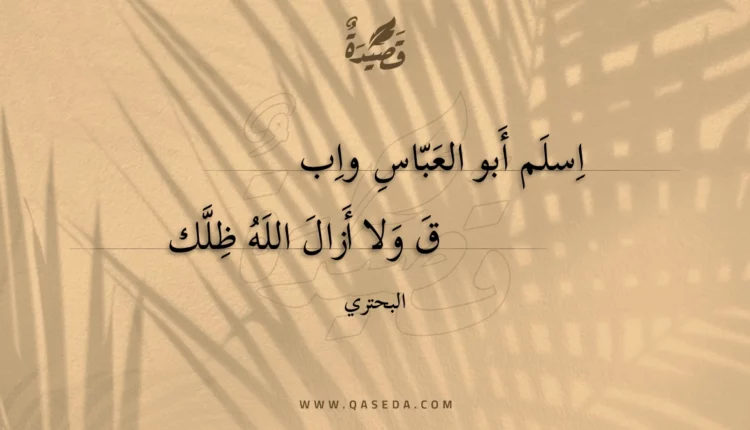 قَصِيدَةٌ
اِسلَم أَبو العَبّاسِ واِب
قَ وَلا أَزالَ اللَهُ ظِلَّك
البحتري
WWW.QASEDA.COM